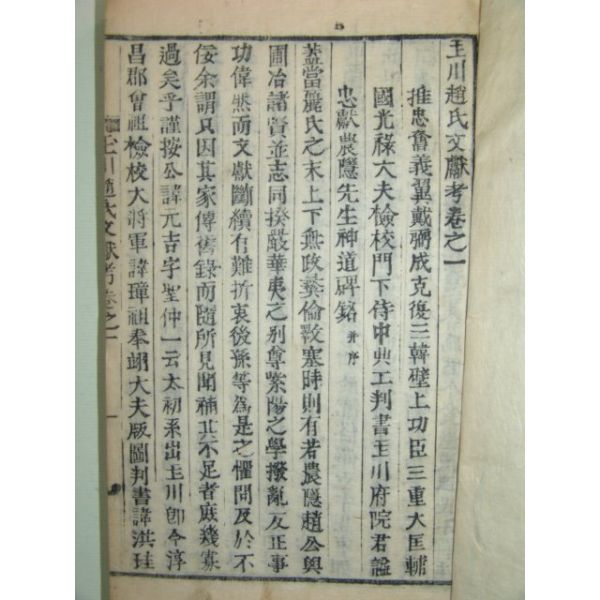 玉川趙氏文獻考卷之一
推忠奮義翼戴弼成克復三韓壁上功臣三重大匡輔
國光祿大夫檢校門下侍中典工判書玉川府院君諡
忠獻農隱先生神道碑銘 并序
蓋當麗氏之末上下無政彝倫斁塞時則有若農隱趙公與
圃冶諸賢並志同揆嚴華夷之別尊紫陽之學撥亂反正事
功偉然而文獻斷續有難折衷後孫等為是之懼問及於不
佞余謂只因其家傳舊錄而隨所見聞補其不足者庶幾寡
過矣乎謹按公諱元吉字聖仲一云太初系出玉川卽今淳
昌郡曾祖檢校大將軍諱璋祖奉翊大夫版圖判書諱洪珪
玉川趙氏文獻考卷之一
一